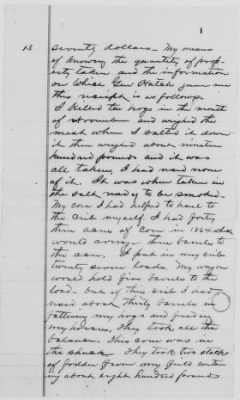 14. seventy dollars. My means
of knowing the quantity of prop-
erty taken and the information
on which Gen Hatch gave me
this receipt is as follows.
I killed ten hogs in the month
of November and weighed the
meat when I salted it down
it then weighed about nineteen
hundred pounds and it was
all taken, I had used none
of it. It was when taken in
the salt ready to be smoked.
My corn I had helped to haul to
the crib myself. I had forty
three acres of corn in 1864 which
would average three barrels to
the acre. I put in my crib
twenty seven loads. My wagon
would hold five barrels to the
load. Out of this crib I had
used about thirty barrels in
fattening my hogs and feeding
my horses. They took all the
balance. This corn was in
the shuck. They took two stacks
of fodder from my field contain-
ing about eight hundred pounds